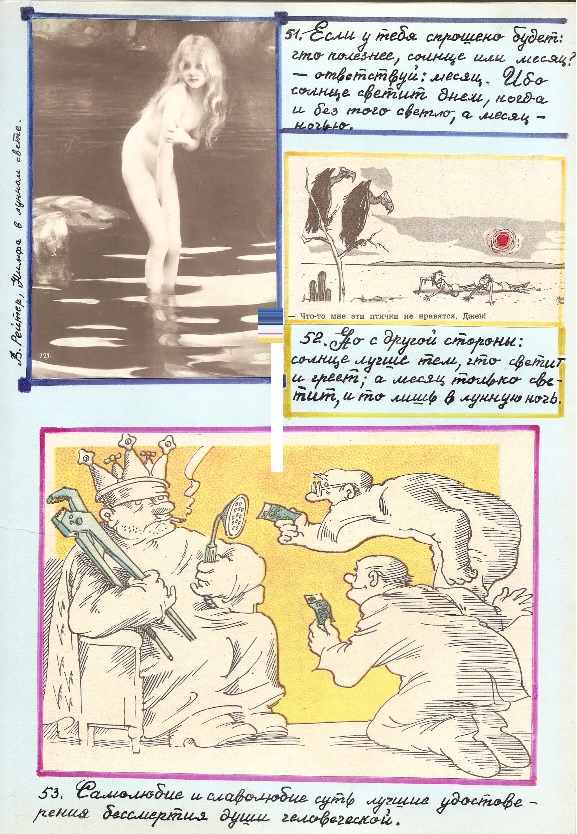 51. Если у тебя спрошено будет:
что полезнее, солнце или месяц?
– ответствуй: месяц. Ибо
солнце светит днем, когда
и без того светло, а месяц –
ночью.
В. Рейтер, Нимфа в лунном свете.
121.
— Что-то мне эти птички не нравятся, Джек!
52. Но с другой стороны:
солнце лучше тем, что светит
и греет; а месяц только све-
тит, и то лишь в лунную ночь.
53. Самолюбие и славолюбие суть лучшие удостове-
рения бессмертия души человеческой.